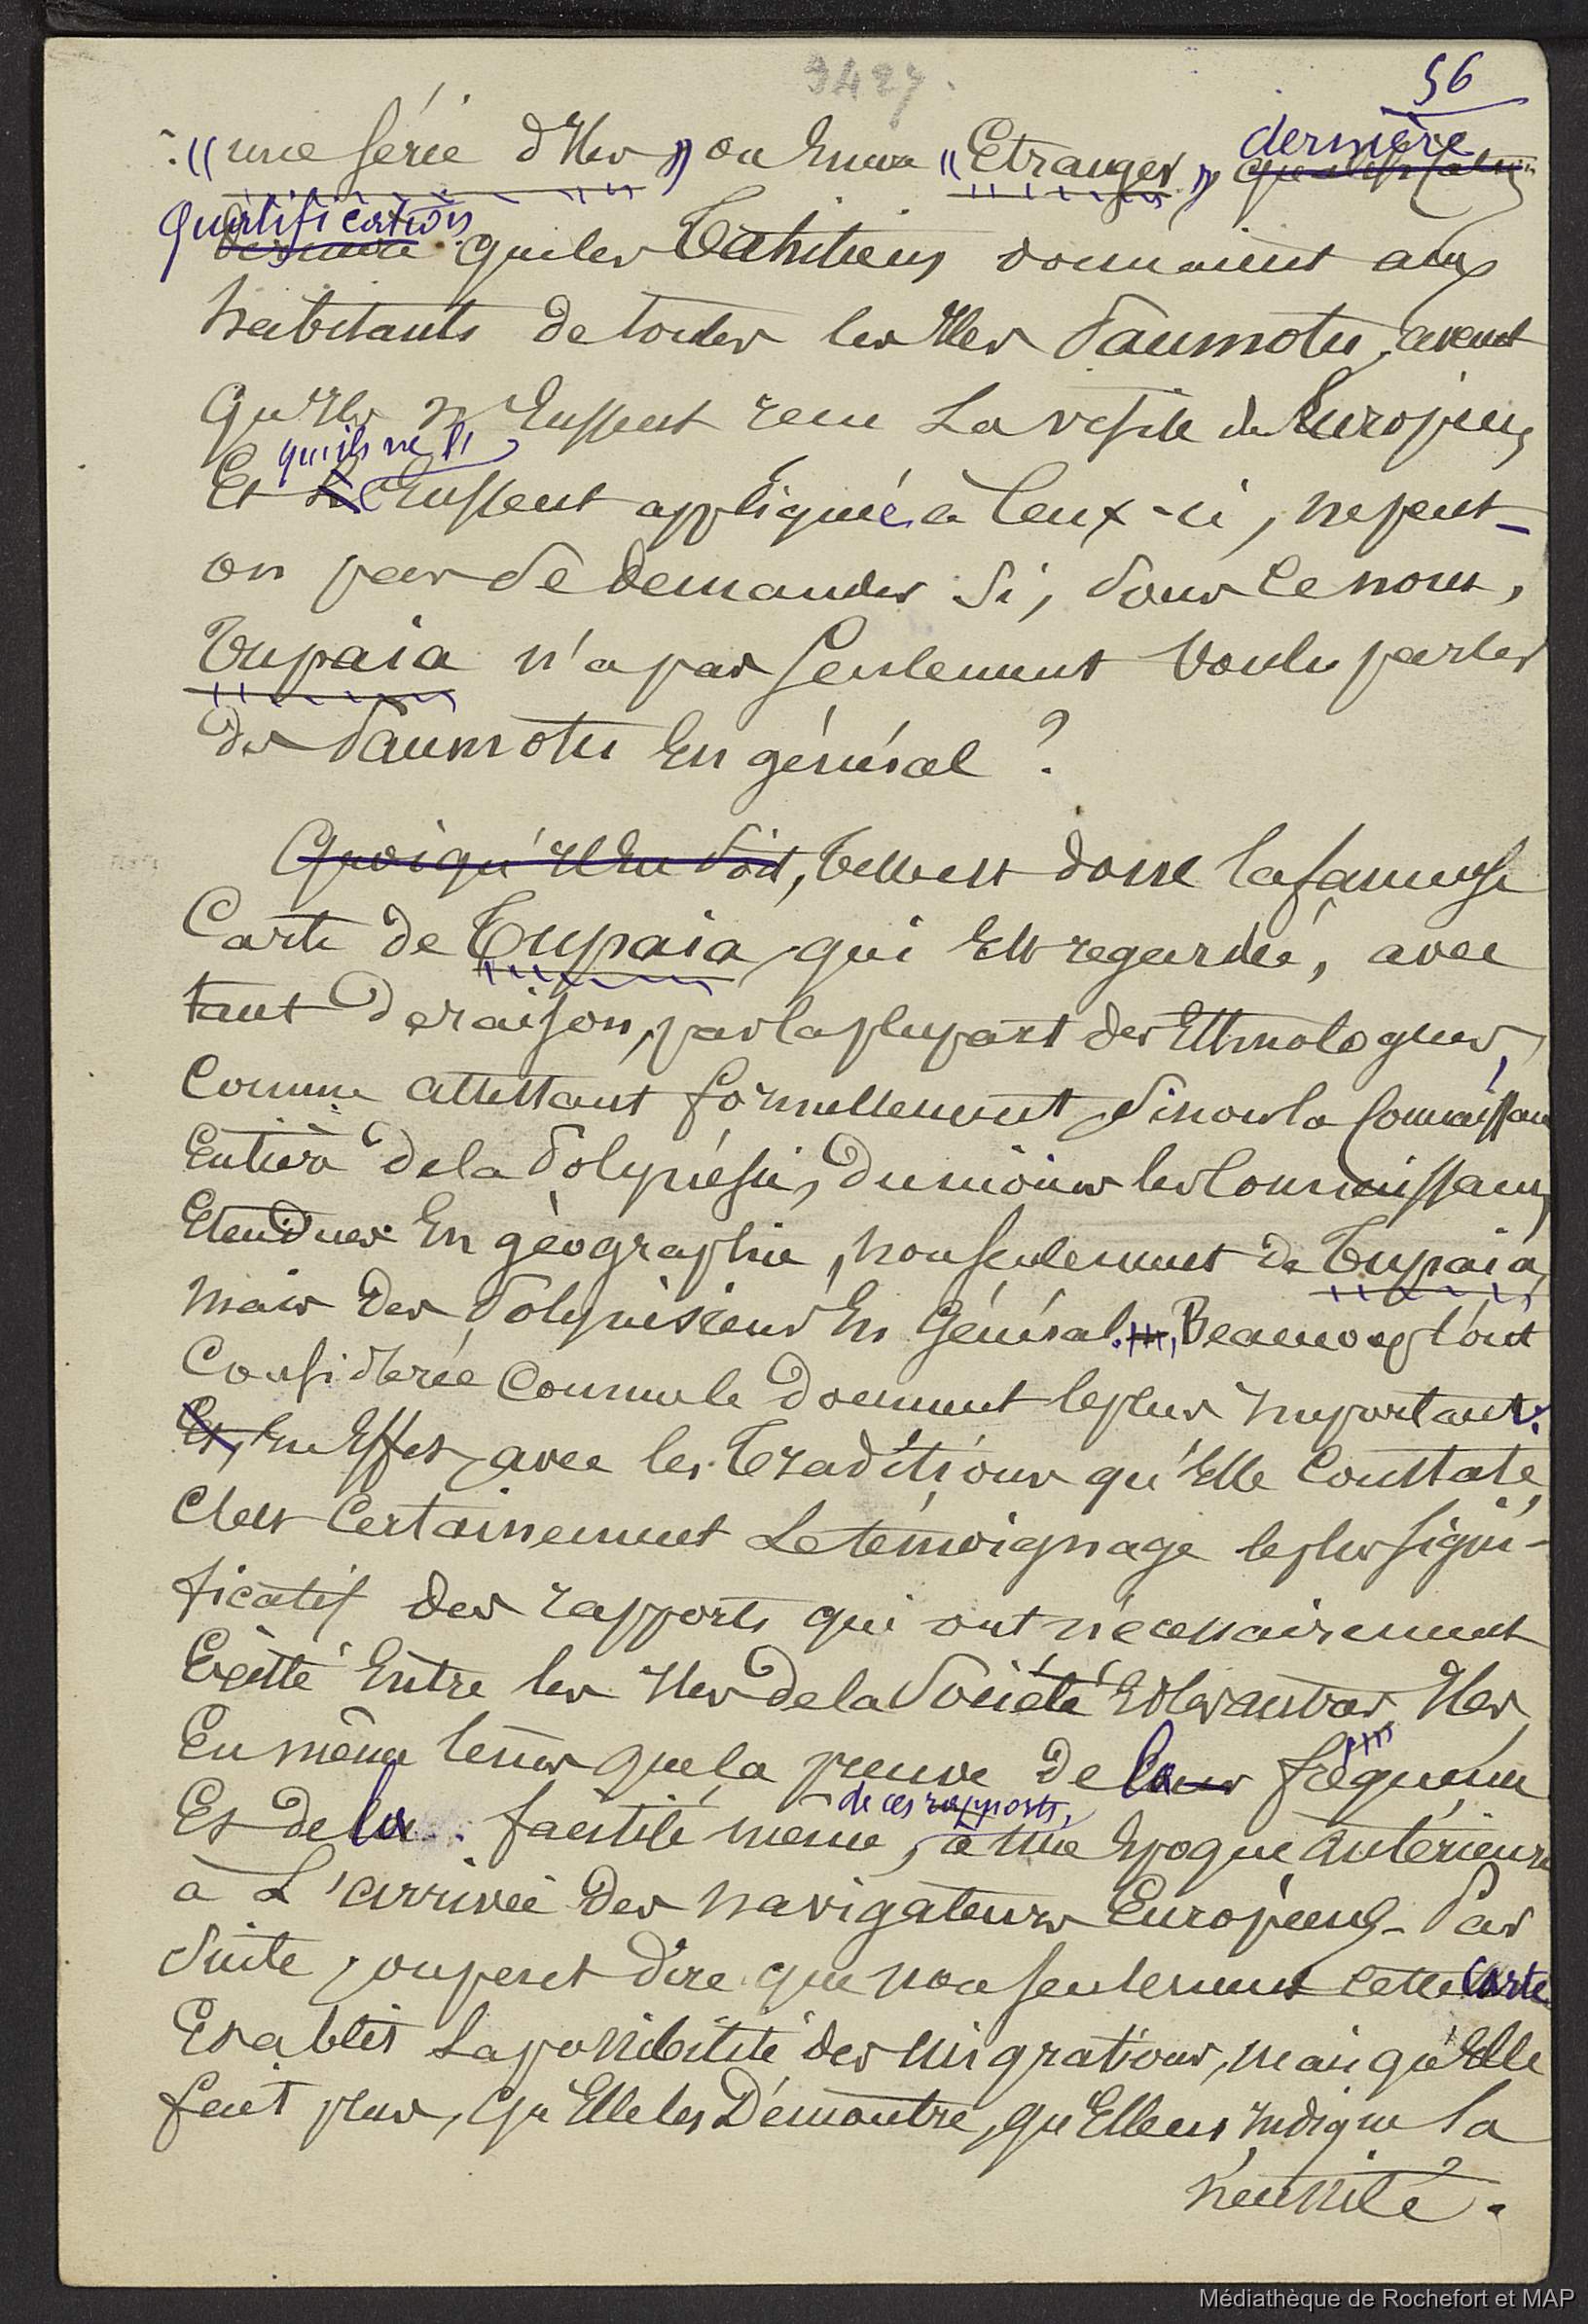 3427.
56
: « une série d'Iles » ou encore « Etranger, » dernière
qualification que les Tahitiens donnaient aux
habitants de toutes les Iles Paumotu, avant
qu'ils n'Eussent reçu La visite des Européens
Et qu'ils ne l'Eussent appliquée à Ceux-ci, ne peut-
on pas se demander Si, sous ce nom,
Tupaia n'a pas seulement voulu parler
des Paumotu En général ?
Quoiqu'il En soit, telle est donc la fameuse
Carte de Tupaia, qui Est regardée, avec
tant de raison, par la plupart des Ethnologues,
Comme attestant formellement, sinon la Connaissance
Entière de la Polynésie, du moins les Connaissances
Etendues En géographie, non seulement de Tupaia,
mais des Polynésiens En Général. Beaucoup l'ont
Considérée Comme le document le plus important.
Et, En Effet, avec les Traditions qu'Elle Constate,
C'est Certainement Le témoignage le plus signi-
ficatif des rapports qui ont nécessairement
Existé Entre les Iles de la Société Et les autres Iles,
En même tems que la preuve de la fréquence
Et de la facilité même, de ces rapports, à une Epoque antérieure
à L'arrivée des navigateurs Européens. Par
Suite, on peut dire que non seulement cette Carte
Etablit La possibilité des migrations, mais qu'Elle
fait plus, qu'Elle les Démontre, qu'Elle en Indique la
nécessité.
Médiathèque de Rochefort et MAP